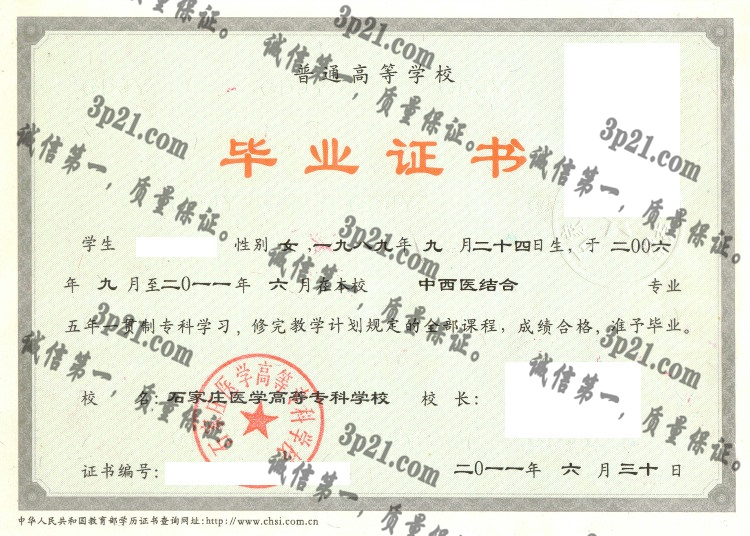 普通高等学校
毕业证书
学生 性别 女,一九八九年 九 月二十四日生,于 二00六
年 九 月至二0一一年 六 月在本校 中西医结合 专业
五年一贯制专科学习,修完教学计划规定的全部课程,成绩合格,准予毕业。
校 名:石家庄医学高等专科学校 校 长:
石家庄医学高等专科学校
证书编号: 二0一一年 六 月三十日
中华人民共和国教育部学历证书查询网址:http://www.chsi.com.cn
3p21.com
诚信第一,质量保证。
3p21.com
诚信第一,质量保证。
3p21.com
诚信第一,质量保证。
3p21.com
诚信第一,质量保证。
3p21.com
诚信第一,质量保证。
3p21.com
诚信第一,质量保证。
3p21.com
诚信第一,质量保证。